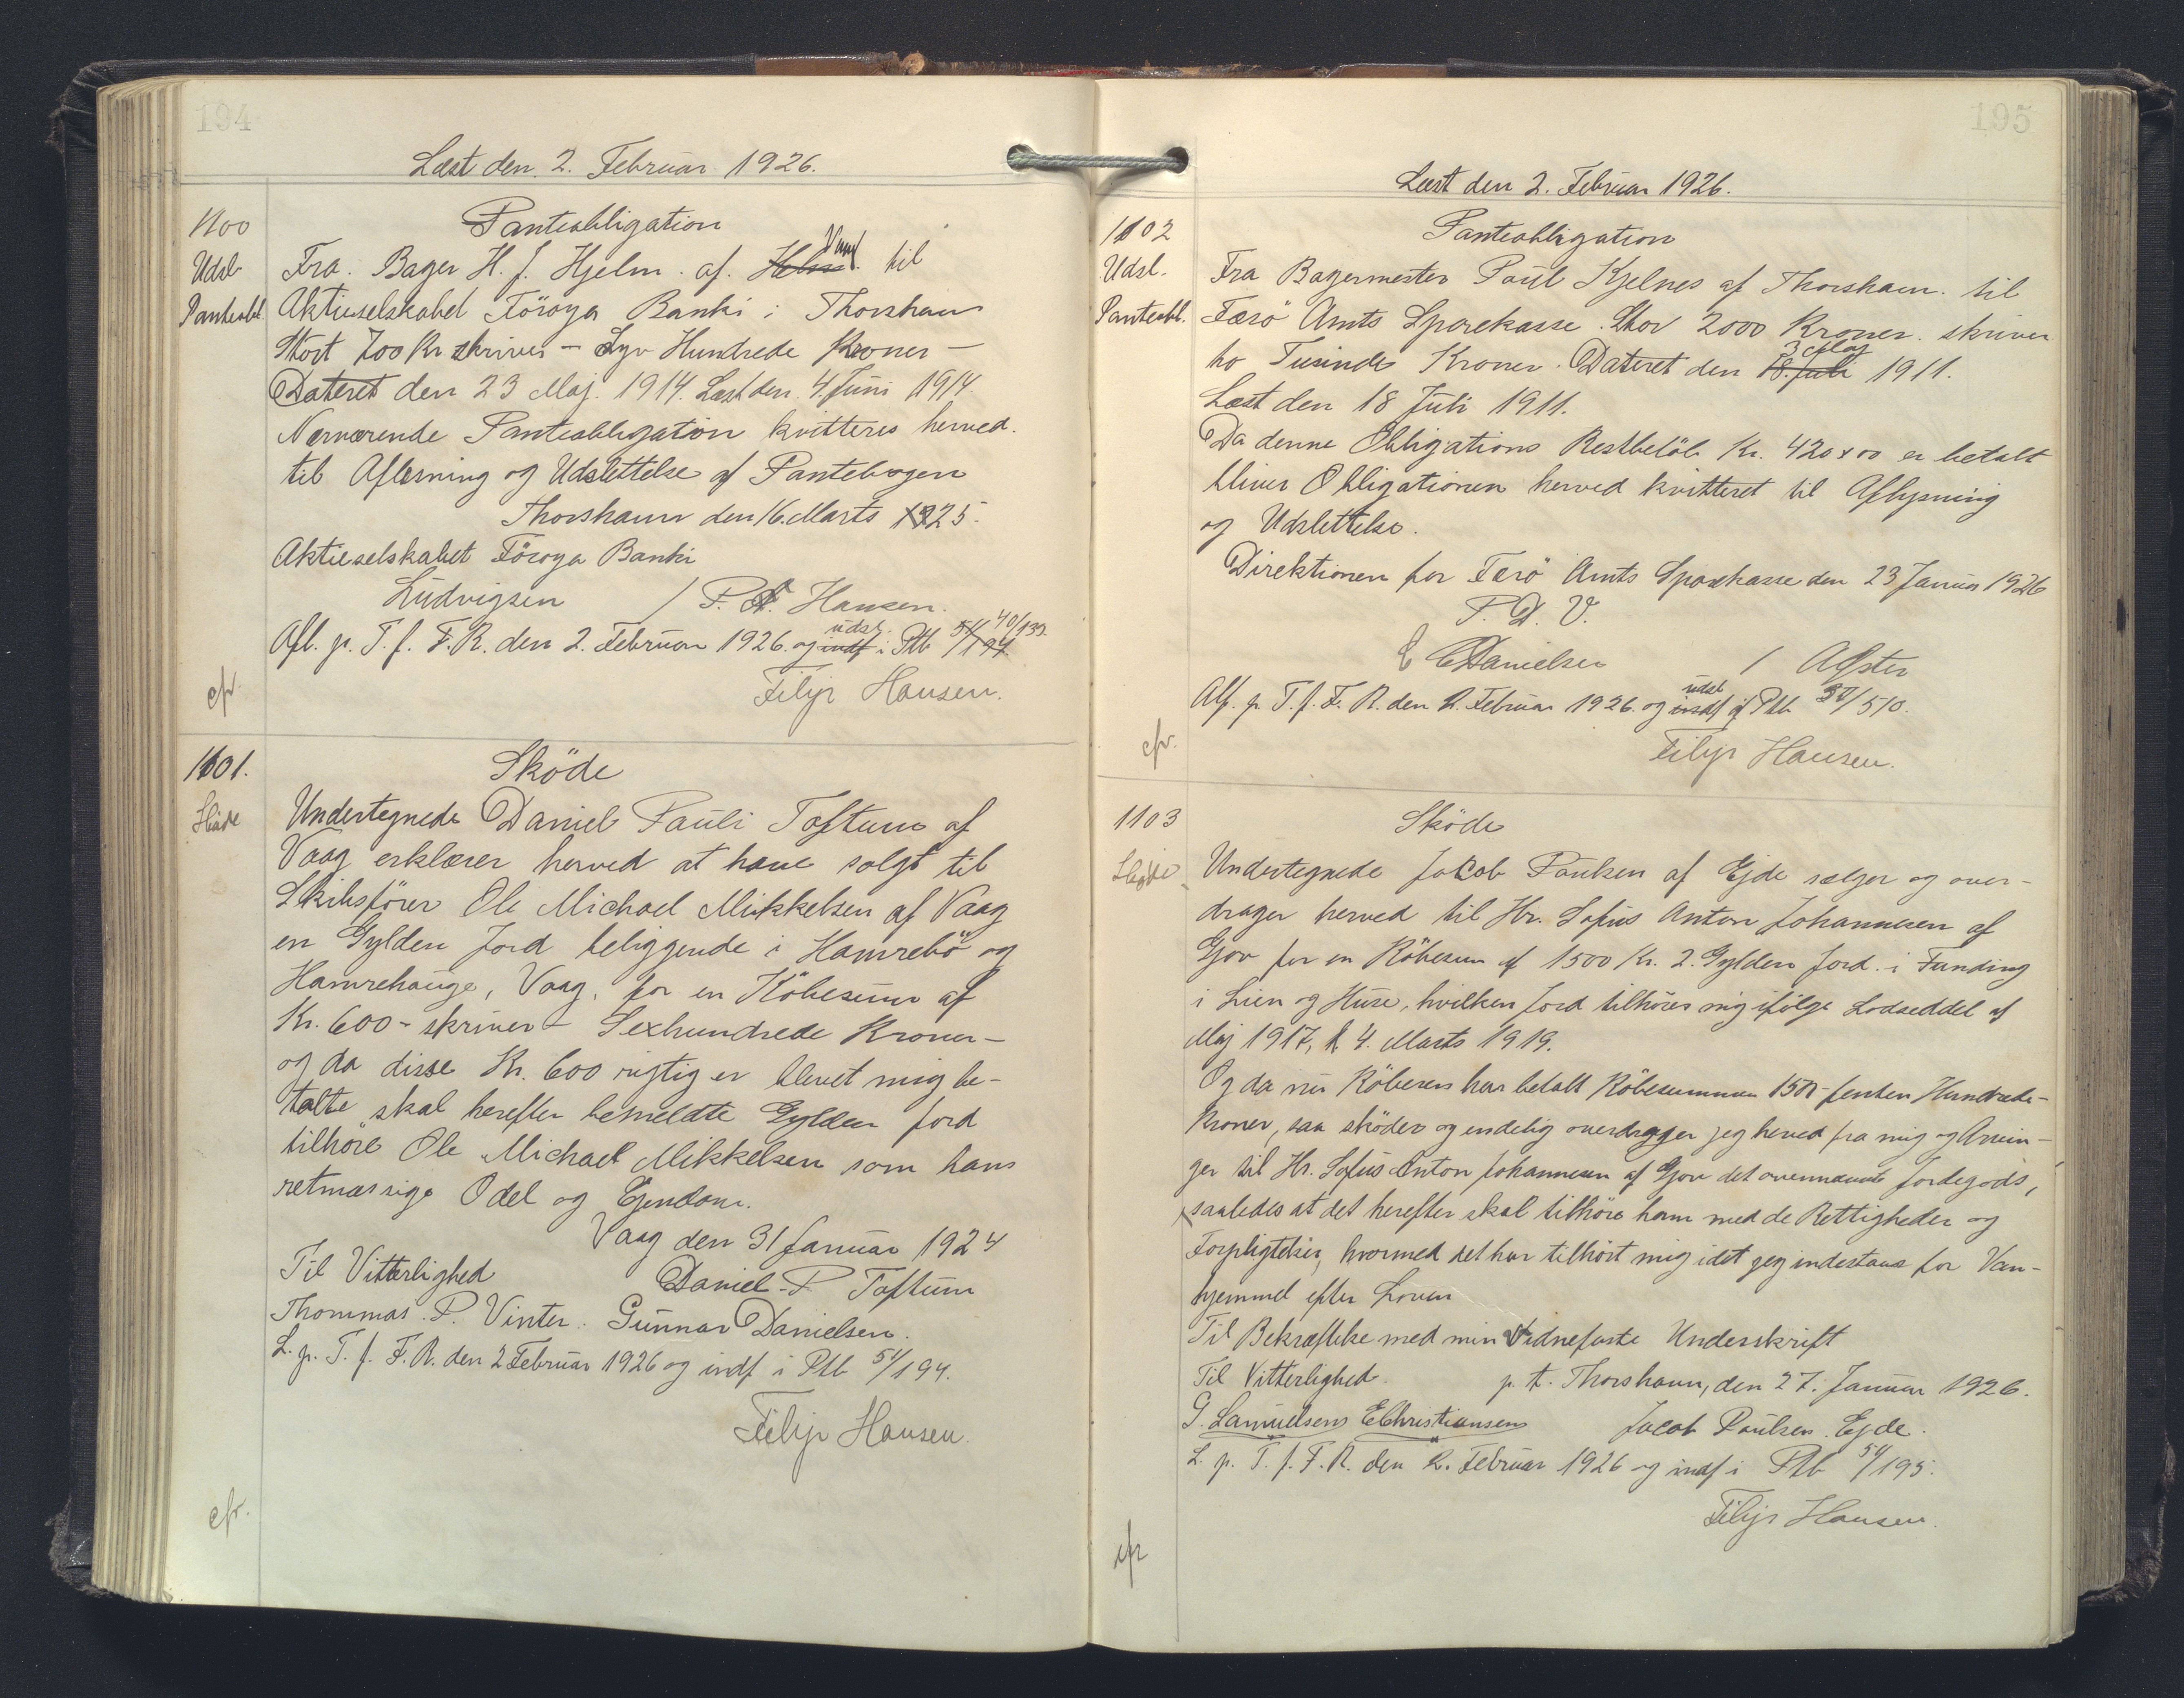 194
Læst den 2. Februar 1926.
1100
Udsl.
Panteobl.
Panteobligation
Fra Bager H. J. Hjelm af til
Aktieselskabet Föroya Banki i Thorshavn
Stort 700 Kr skriver - Syv Hundrede Kroner -
Dateret den 23 Maj 1914. Læst den 4. Juni 1914.
Nærværende Panteobligation kvitteres herved
til Aflæsning og Udslettelse af Pantebogen
Thorshavn den 16. Marts 1925.
Aktieselskabet Föroya Banki
Ludvigsen / P. A. Hansen.
Afl. p. T. f. F. R. den 2. Februar 1926 og udsl. i Ptb 40/133
Filip Hansen.
cfr.
1101.
Sköde
Sköde
Undertegnede Daniel Pauli Toftum af
Vaag erklærer herved at have solgt til
Skibsförer Ole Michael Mikkelsen af Vaag
en Gylden Jord beliggende i Hamrebö og
Hamrehauge, Vaag, for en Köbesum af
Kr. 600 - skriver - Sexhundrede Kroner -
og da disse Kr. 600 rigtig er blevet mig be-
talte skal herefter bemeldte Gylden Jord
tilhöre Ole Michael Mikkelsen som hans
retmæssige Odel og Ejendom.
Vaag den 31 Januar 1924
Til Vitterlighed Daniel P Toftum
Thommas P. Vinter. Gunnar Danielsen.
L. p. T. f. F. R. den 2 Februar 1926 og indf i Ptb 54/194.
Filip Hansen.
cfr.
195
Læst den 2. Februar 1926.
1102
Udsl.
Panteobl.
Panteobligation
Fra Bagermester Paul Kjelnes af Thorshavn til
Færö Amts Sparekasse. Stor 2000 Kroner skriver
to Tusinde Kroner. Dateret den 3 Maj 1911.
Læst den 18 Juli 1911.
Da denne Obligations Restbelöb Kr. 420x00 er betalt
bliver Obligationen herved kvitteret til Aflysning
og Udslettelse.
Direktionen for Færö Amts Sparekasse den 23 Januar 1926
P. D. V.
E Danielsen /
Afl. p. T. f. F. R. den 2. Februar 1926 og udsl af Ptb 37/510.
Filip Hansen.
cfr.
1103
Sköde
Sköde
Undertegnede Jacob Paulsen af Ejde sælger og over-
drager herved til Hr. Sofus Anton Johannesen af
Gjov for en Köbesum af 1500 Kr. 2 Gylden Jord i Funding
i Lien og Huse, hvilken Jord tilhörer mig ifölge Lodseddel af
Maj 1917, l. 4. Marts 1919.
Og da nu Köberen har betalt Köbesummen 1500 femten Hundrede
Kroner, saa sköder og endelig overdrager jeg herved fra mig og Arvin-
ger til Hr. Sofus Anton Johannesen af Gjov det ovennævnte Jordegods,
saaledes at det herefter skal tilhöre ham med de Rettigheder og
Forpligtelser, hvormed det har tilhört mig idet jeg indestaar for Van-
hjemmel efter Loven
Til Bekræftelse med min vidnefaste Underskrift
Til Vitterlighed. p. t. Thorshavn, den 27. Januar 1926.
G. Samuelsen EChristiansen Jacob Paulsen. Ejde.
L. p. T. f. F. R. den 2. Februar 1926 og indf i Ptb 54/195.
Filip Hansen.
cfr